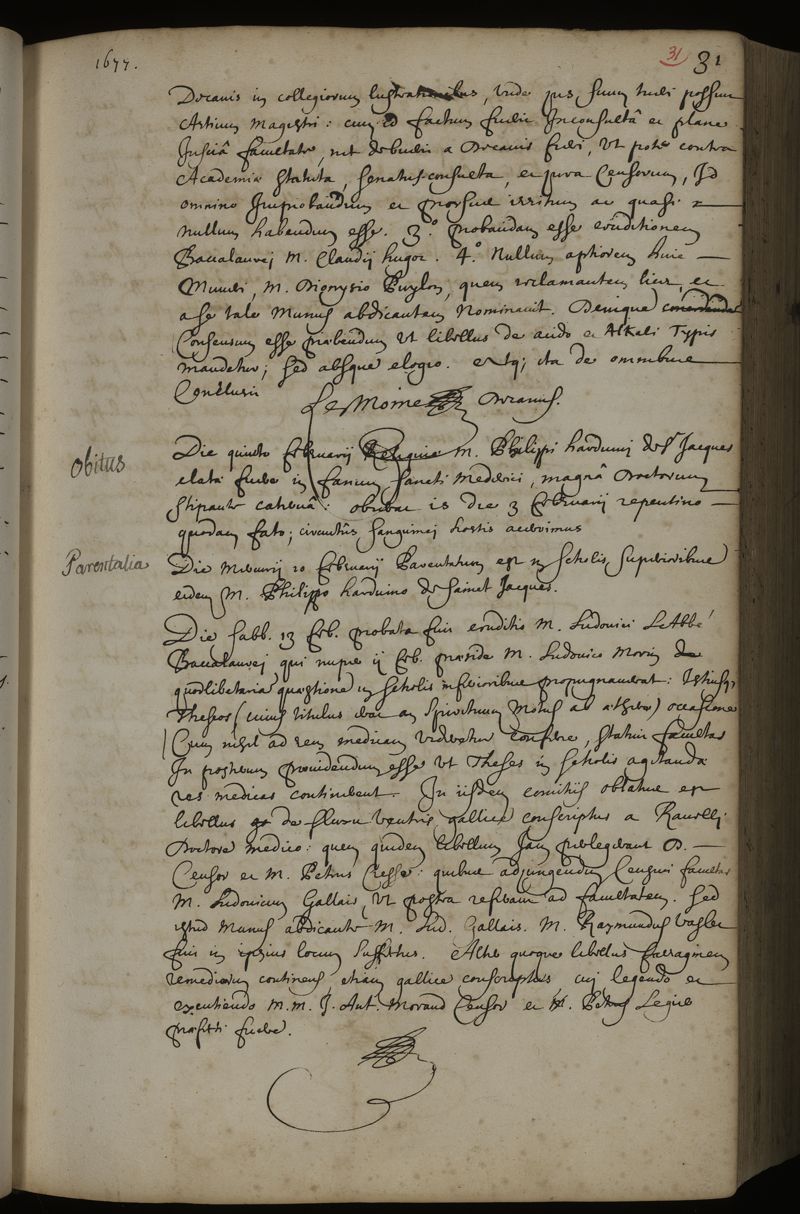 1677.
31 31
Decanis in collegiorum lustrationibus, unde jus suum tueri possunt
Artium Magistri: cum id factum fuerit Inconsultâ et plane
Insciâ facultate, nec debuerit a Decanis fieri, ut pote contra
Academiæ statuta, senatus-consulta, et jura Censorum, Id
omnino Improbandum et prorsus irritum ac quasi
nullum habendum esse. 3.° probandam esse eruditionem
Baccalaurej M. Claudij hugot. 4.° Nullum aptiorem huic
Muneri, M. Dionysio Puylon, quem reclamantem licet, et
a se tale Munus abdicantem Nominavit. Denique
Consensum esse præbendum ut libellus de acido et Alkali Typis
mandetur; sed absque elogio. atq; ita de omnibus
Conclusit
Le Moine Decanus.
Obitus
Die quinto februarij Reliquiæ M. Philippi harduini de St Jacques
elatæ fuere in fanum sancti Mederici, magnâ Doctorum
stipante catervâ: obierat is die 3 februarij repentino
quodam fato; circuitûs sanguinej hostis acerrimus
Parentalia
Die Mercurij 10 februarij Parentatum est in scholis superioribus
eidem M. Philippo harduino de sainct Jacques.
Die sabb. 13 feb. probata fuit eruditio M. Ludovici LeAbbé
Baccalaurej qui nuper ij feb. præside M. Ludovico Morin de
quodlibetaria quæstione in scholis inferioribus propugnaverat: Istiusq;
Theseos (cuius titulus erat an spirituum Motus ab æthere) occasione
Cum nihil ad rem medicam videretur conferre, statuit facultas
In posterum providendum esse ut Theses in scholis agitandæ
res medicas continerent. In iisdem comitijs oblatus est
libellus de fluxu ventris gallice conscriptus a
Doctore medico: quem quidem libellum jam perlegerant D.
Censor et M. Petrus Cressé: quibus adjungendum Censuit facultas
M. Ludovicum Gallais, ut postea referant ad facultatem. sed
istud munus abdicante M. Lud. Gallais. M. Raymundus
fuit in ipsius locum suffectus. Alter quoque libellus farraginem
remediorum continens, etiam gallice conscriptus, cui legendo et
excutiendo M.M. J. Ant. Morand Censor et M. Petrus Legier
præfecti fuere.